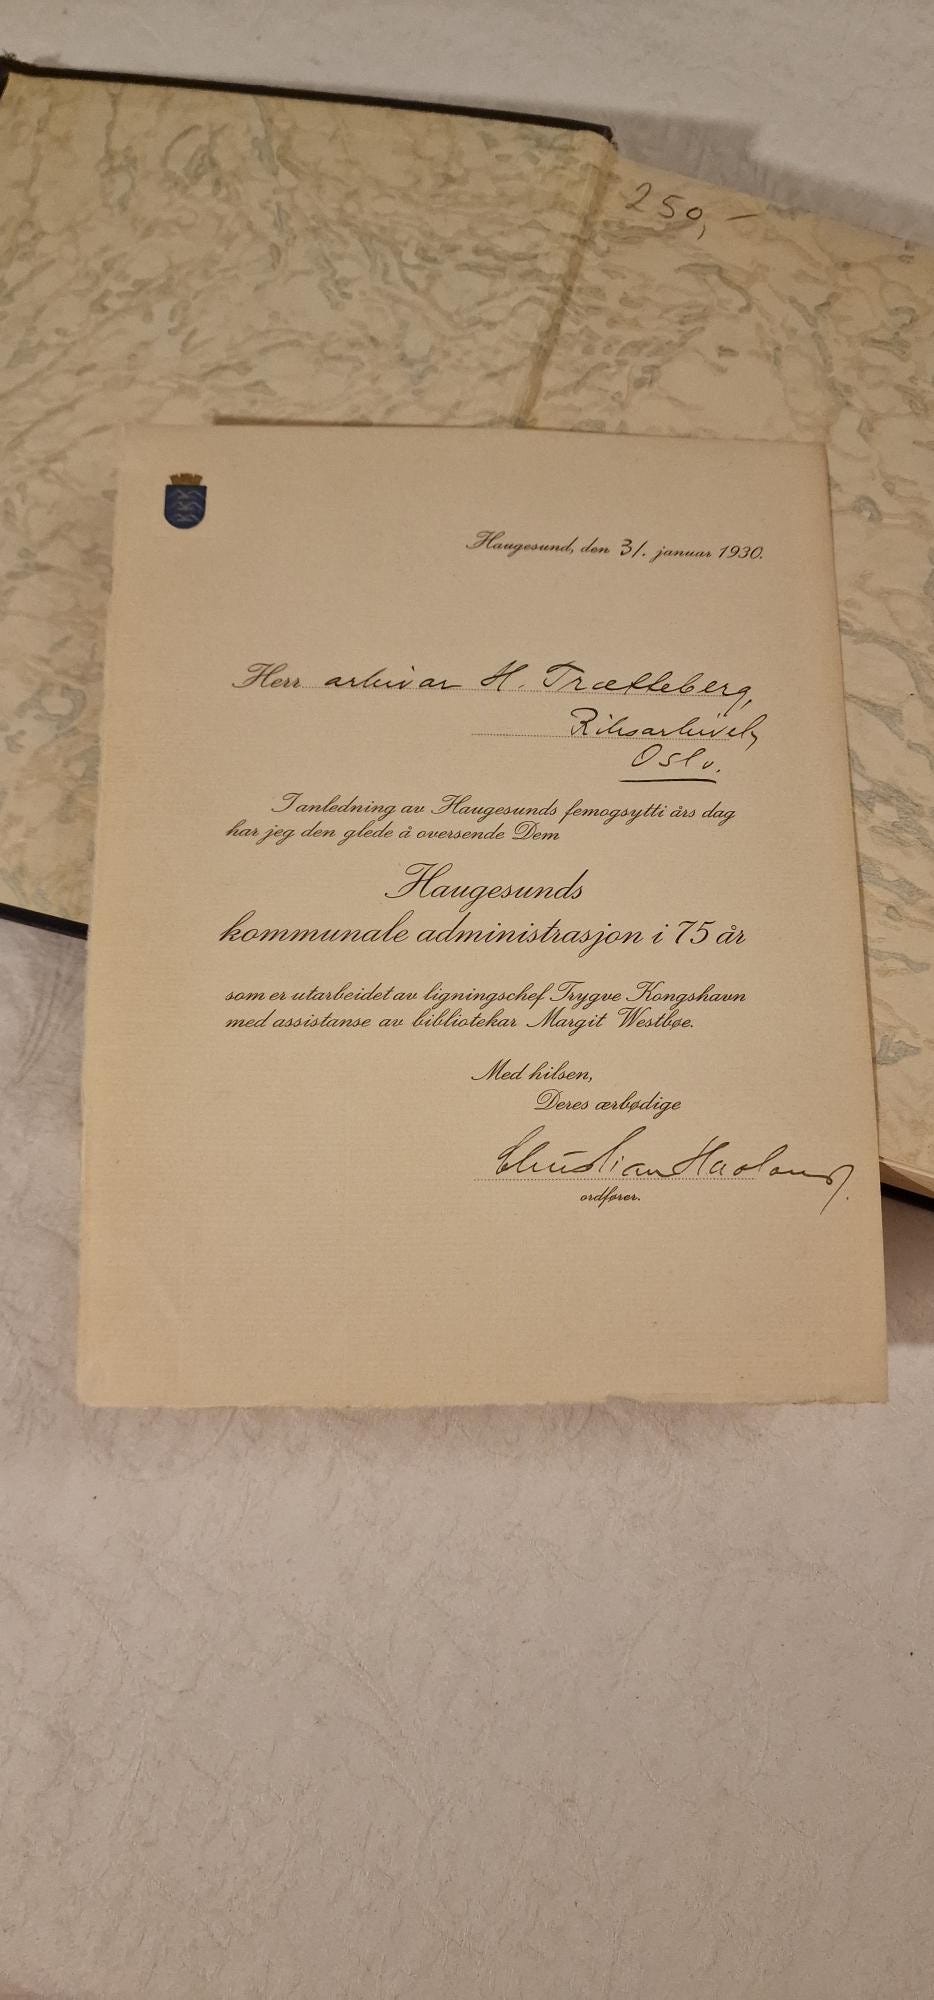 250,-
Haugesund, den 31. januar 1930.
Herr arkivar H. Trætteberg,
Riksarkivet,
Oslo.
I anledning av Haugesunds femogsytti års dag
har jeg den glede å oversende Dem
Haugesunds
kommunale administrasjon i 75 år
som er utarbeidet av ligningschef Trygve Kongshavn
med assistanse av bibliotekar Margit Westbøe.
Med hilsen,
Deres ærbødige
Christian Haaland.
ordfører.